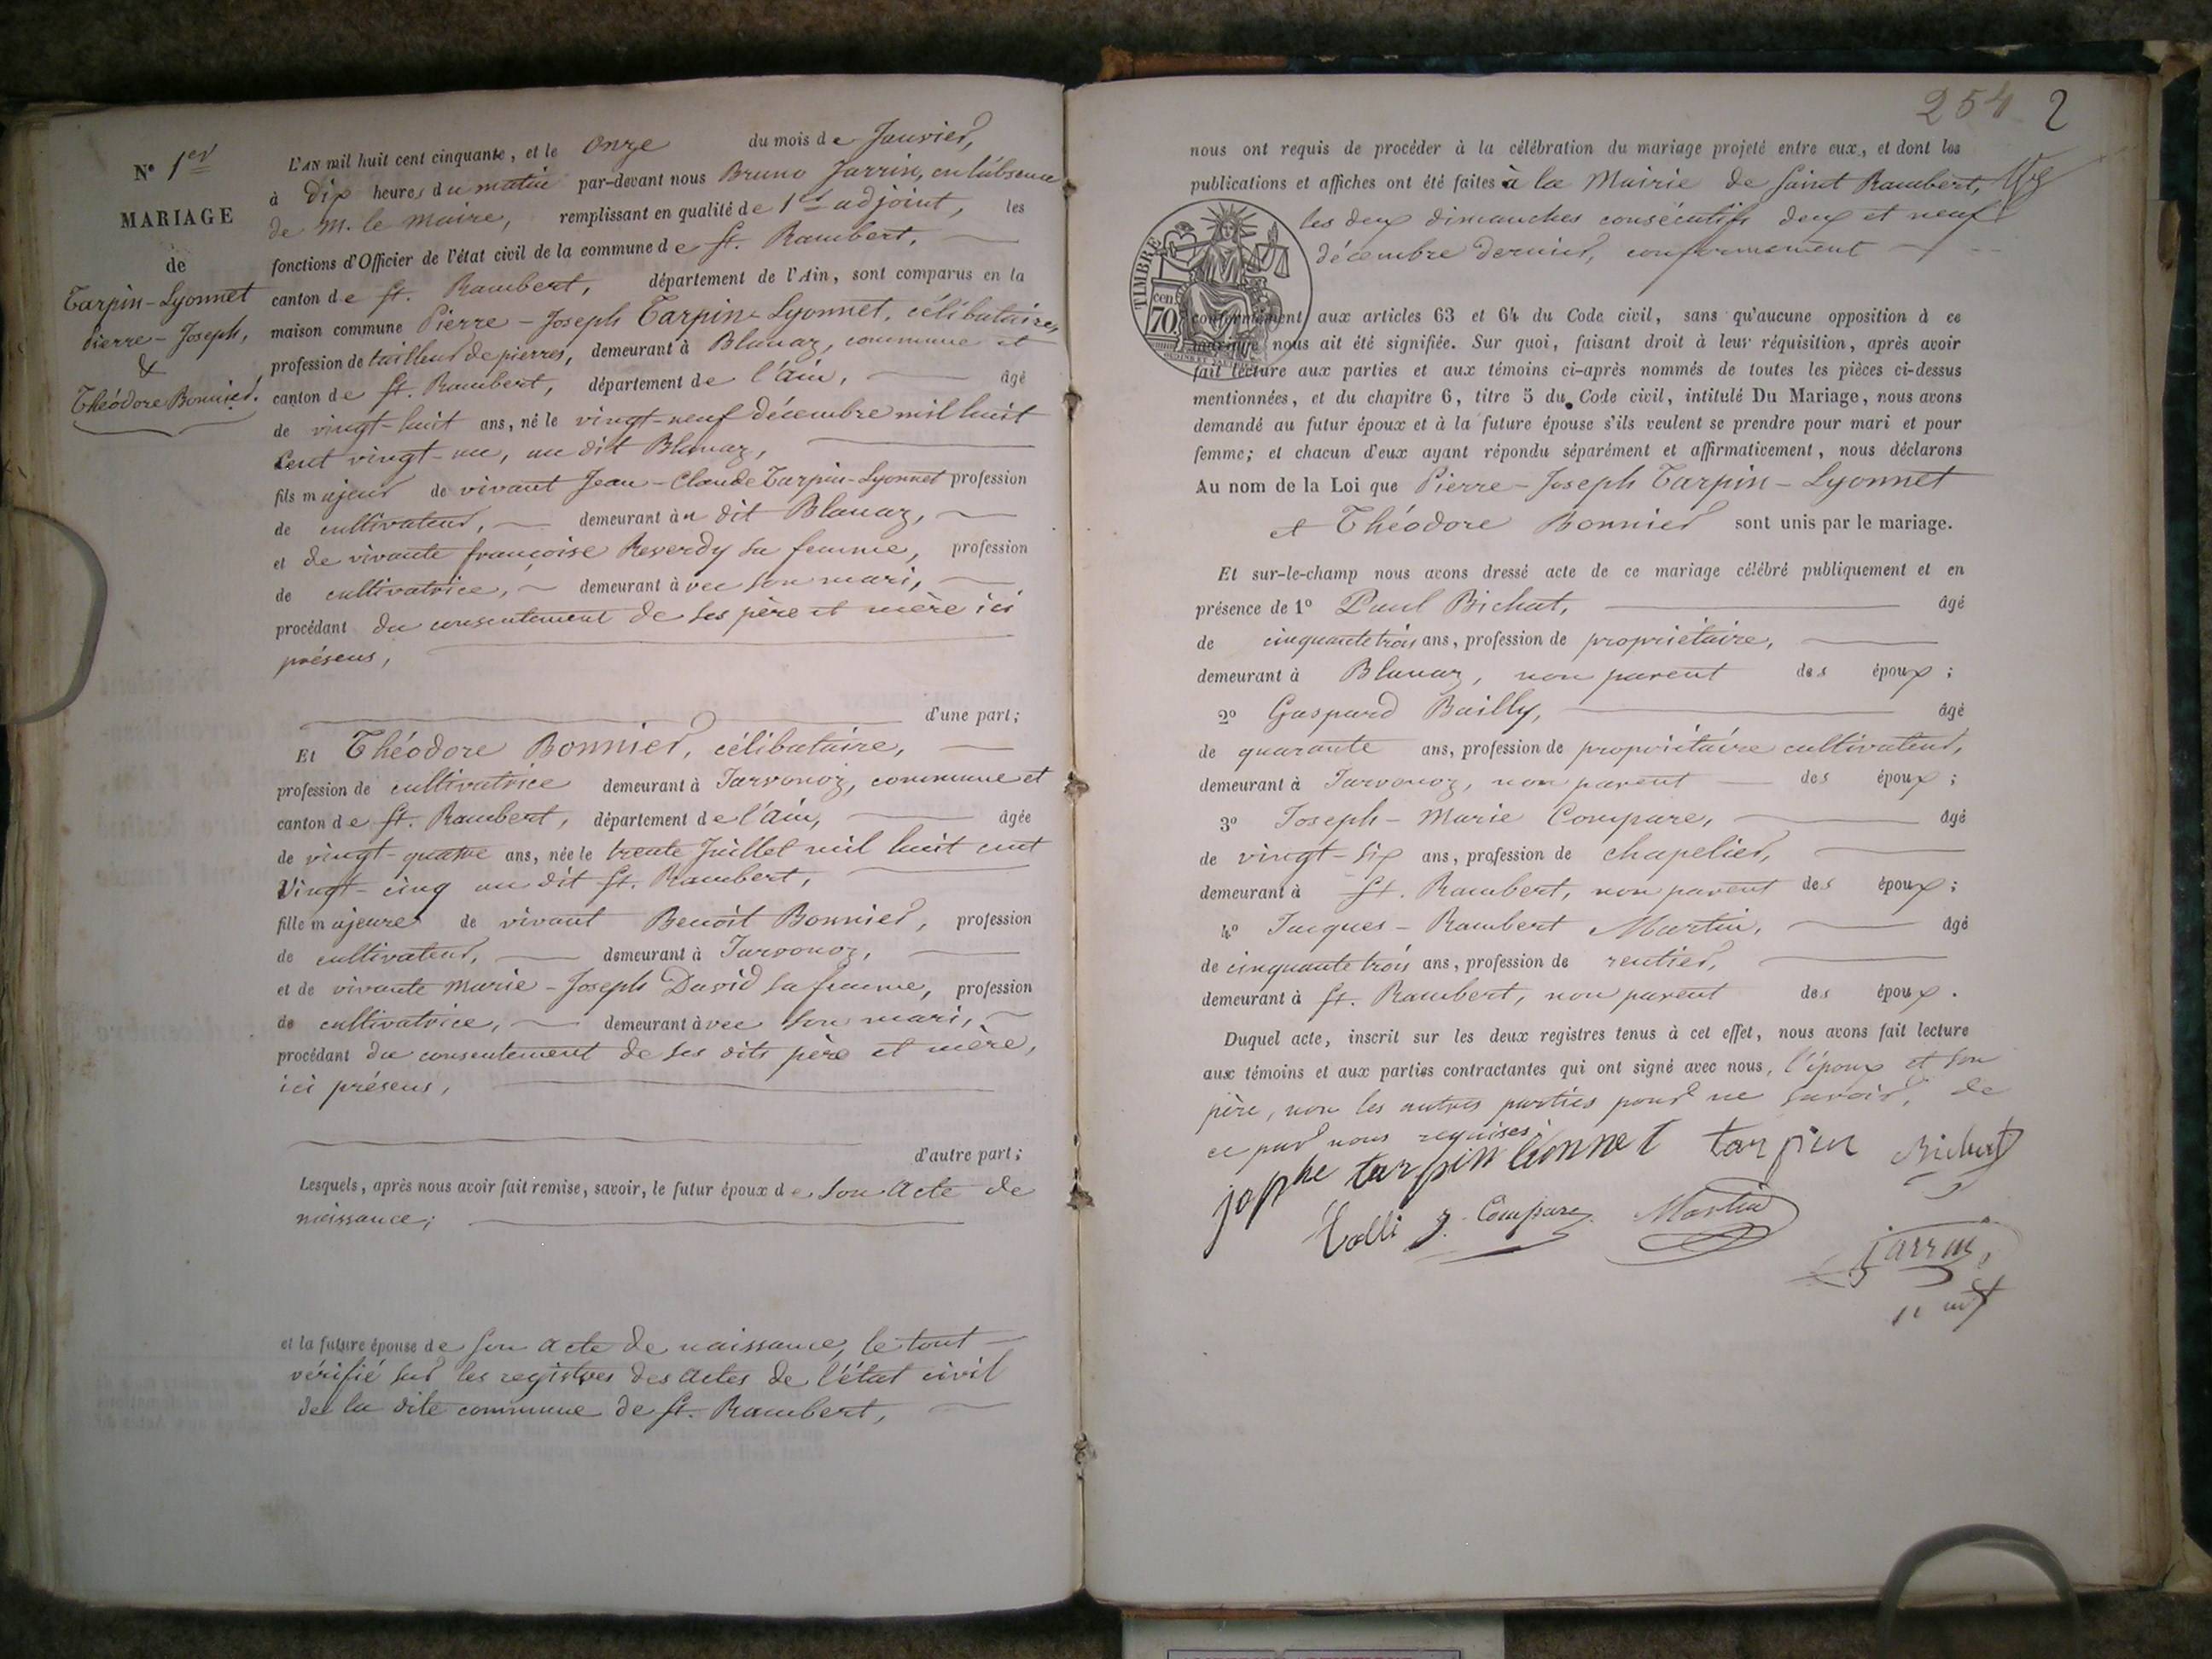 N° 1er
MARIAGE
de
Tarpin-Lyonnet
Pierre-Joseph,
&
Théodore Bonnier.
L'AN mil huit cent cinquante, et le onze du mois de Janvier,
à dix heures du matin par-devant nous Bruno Jarrin, en l'absence
de M. le Maire, remplissant en qualité de 1er adjoint, les
fonctions d'Officier de l'état civil de la commune de St. Rambert,
canton de St. Rambert, département de l'Ain, sont comparus en la
maison commune Pierre-Joseph Tarpin-Lyonnet, célibataire,
profession de tailleur de pierres, demeurant à Blanaz, commune et
canton de St. Rambert, département de l'Ain, âgé
de vingt-huit ans, né le vingt-neuf décembre mil huit
cent vingt-un, au dit Blanaz,
fils majeur de vivant Jean-Claude Tarpin-Lyonnet profession
de cultivateur, demeurant au dit Blanaz,
et de vivante françoise Reverdy sa femme, profession
de cultivatrice, demeurant avec son mari,
procédant du consentement de ses père et mère ici
présens,
d'une part;
Et Théodore Bonnier, célibataire,
profession de cultivatrice demeurant à Javornoz, commune et
canton de St. Rambert, département de l'Ain, âgée
de vingt-quatre ans, née le trente Juillet mil huit cent
vingt-cinq au dit St. Rambert,
fille majeure de vivant Benoit Bonnier, profession
de cultivateur, demeurant à Javornoz,
et de vivante Marie-Joseph David sa femme, profession
de cultivatrice, demeurant avec son mari,
procédant du consentement de ses dits père et mère,
ici présens,
d'autre part;
Lesquels, après nous avoir fait remise, savoir, le futur époux de son acte de
naissance;
et la future épouse de son acte de naissance, le tout
vérifié sur les registres des actes de l'état civil
de la dite commune de St. Rambert,
254 2
nous ont requis de procéder à la célébration du mariage projeté entre eux, et dont les
publications et affiches ont été faites à la Mairie de Saint Rambert,
les deux dimanches consécutifs deux et neuf
décembre dernier, conformément
TIMBRE
70 cen
conformément aux articles 63 et 64 du Code civil, sans qu'aucune opposition à ce
mariage nous ait été signifiée. Sur quoi, faisant droit à leur réquisition, après avoir
fait lecture aux parties et aux témoins ci-après nommés de toutes les pièces ci-dessus
mentionnées, et du chapitre 6, titre 5 du Code civil, intitulé Du Mariage, nous avons
demandé au futur époux et à la future épouse s'ils veulent se prendre pour mari et pour
femme; et chacun d'eux ayant répondu séparément et affirmativement, nous déclarons
Au nom de la Loi que Pierre-Joseph Tarpin-Lyonnet
et Théodore Bonnier sont unis par le mariage.
Et sur-le-champ nous avons dressé acte de ce mariage célébré publiquement et en
présence de 1° Paul Bichat, âgé
de cinquante trois ans, profession de propriétaire,
demeurant à Blanaz, non parent des époux;
2° Gaspard Bailly, âgé
de quarante ans, profession de propriétaire cultivateur,
demeurant à Javornoz, non parent des époux;
3° Joseph-Marie Compare, âgé
de vingt-six ans, profession de chapelier,
demeurant à St. Rambert, non parent des époux;
4° Jacques-Rambert Martin, âgé
de cinquante trois ans, profession de rentier,
demeurant à St. Rambert, non parent des époux.
Duquel acte, inscrit sur les deux registres tenus à cet effet, nous avons fait lecture
aux témoins et aux parties contractantes qui ont signé avec nous, l'époux et son
père, non les autres parties pour ne savoir, de
ce par nous requises.
josphe tarpin lionnet tarpin Bichat
J. Compare Martin
Jarrin